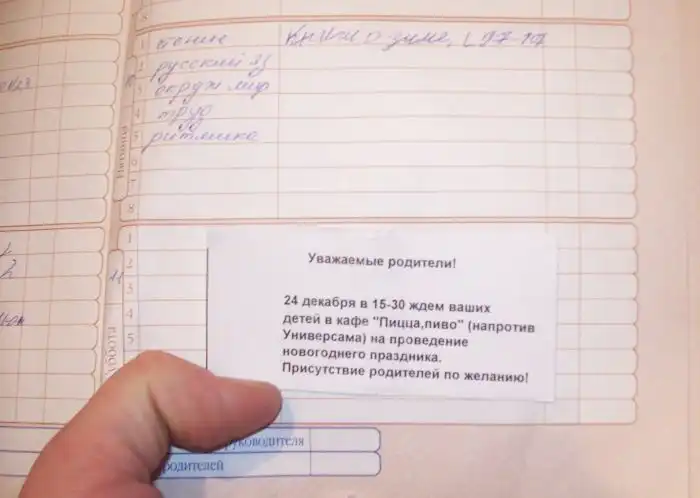 8
1 чтение Книги о зиме, с 97-107
2 русский яз
3 окруж мир
4 труд
5 ритмика
6
7
8
Пятница
1
2
3
4
5
Уважаемые родители!
24 декабря в 15-30 ждем ваших
детей в кафе "Пицца,пиво" (напротив
Универсама) на проведение
новогоднего праздника.
Присутствие родителей по желанию!
руководителя
родителей